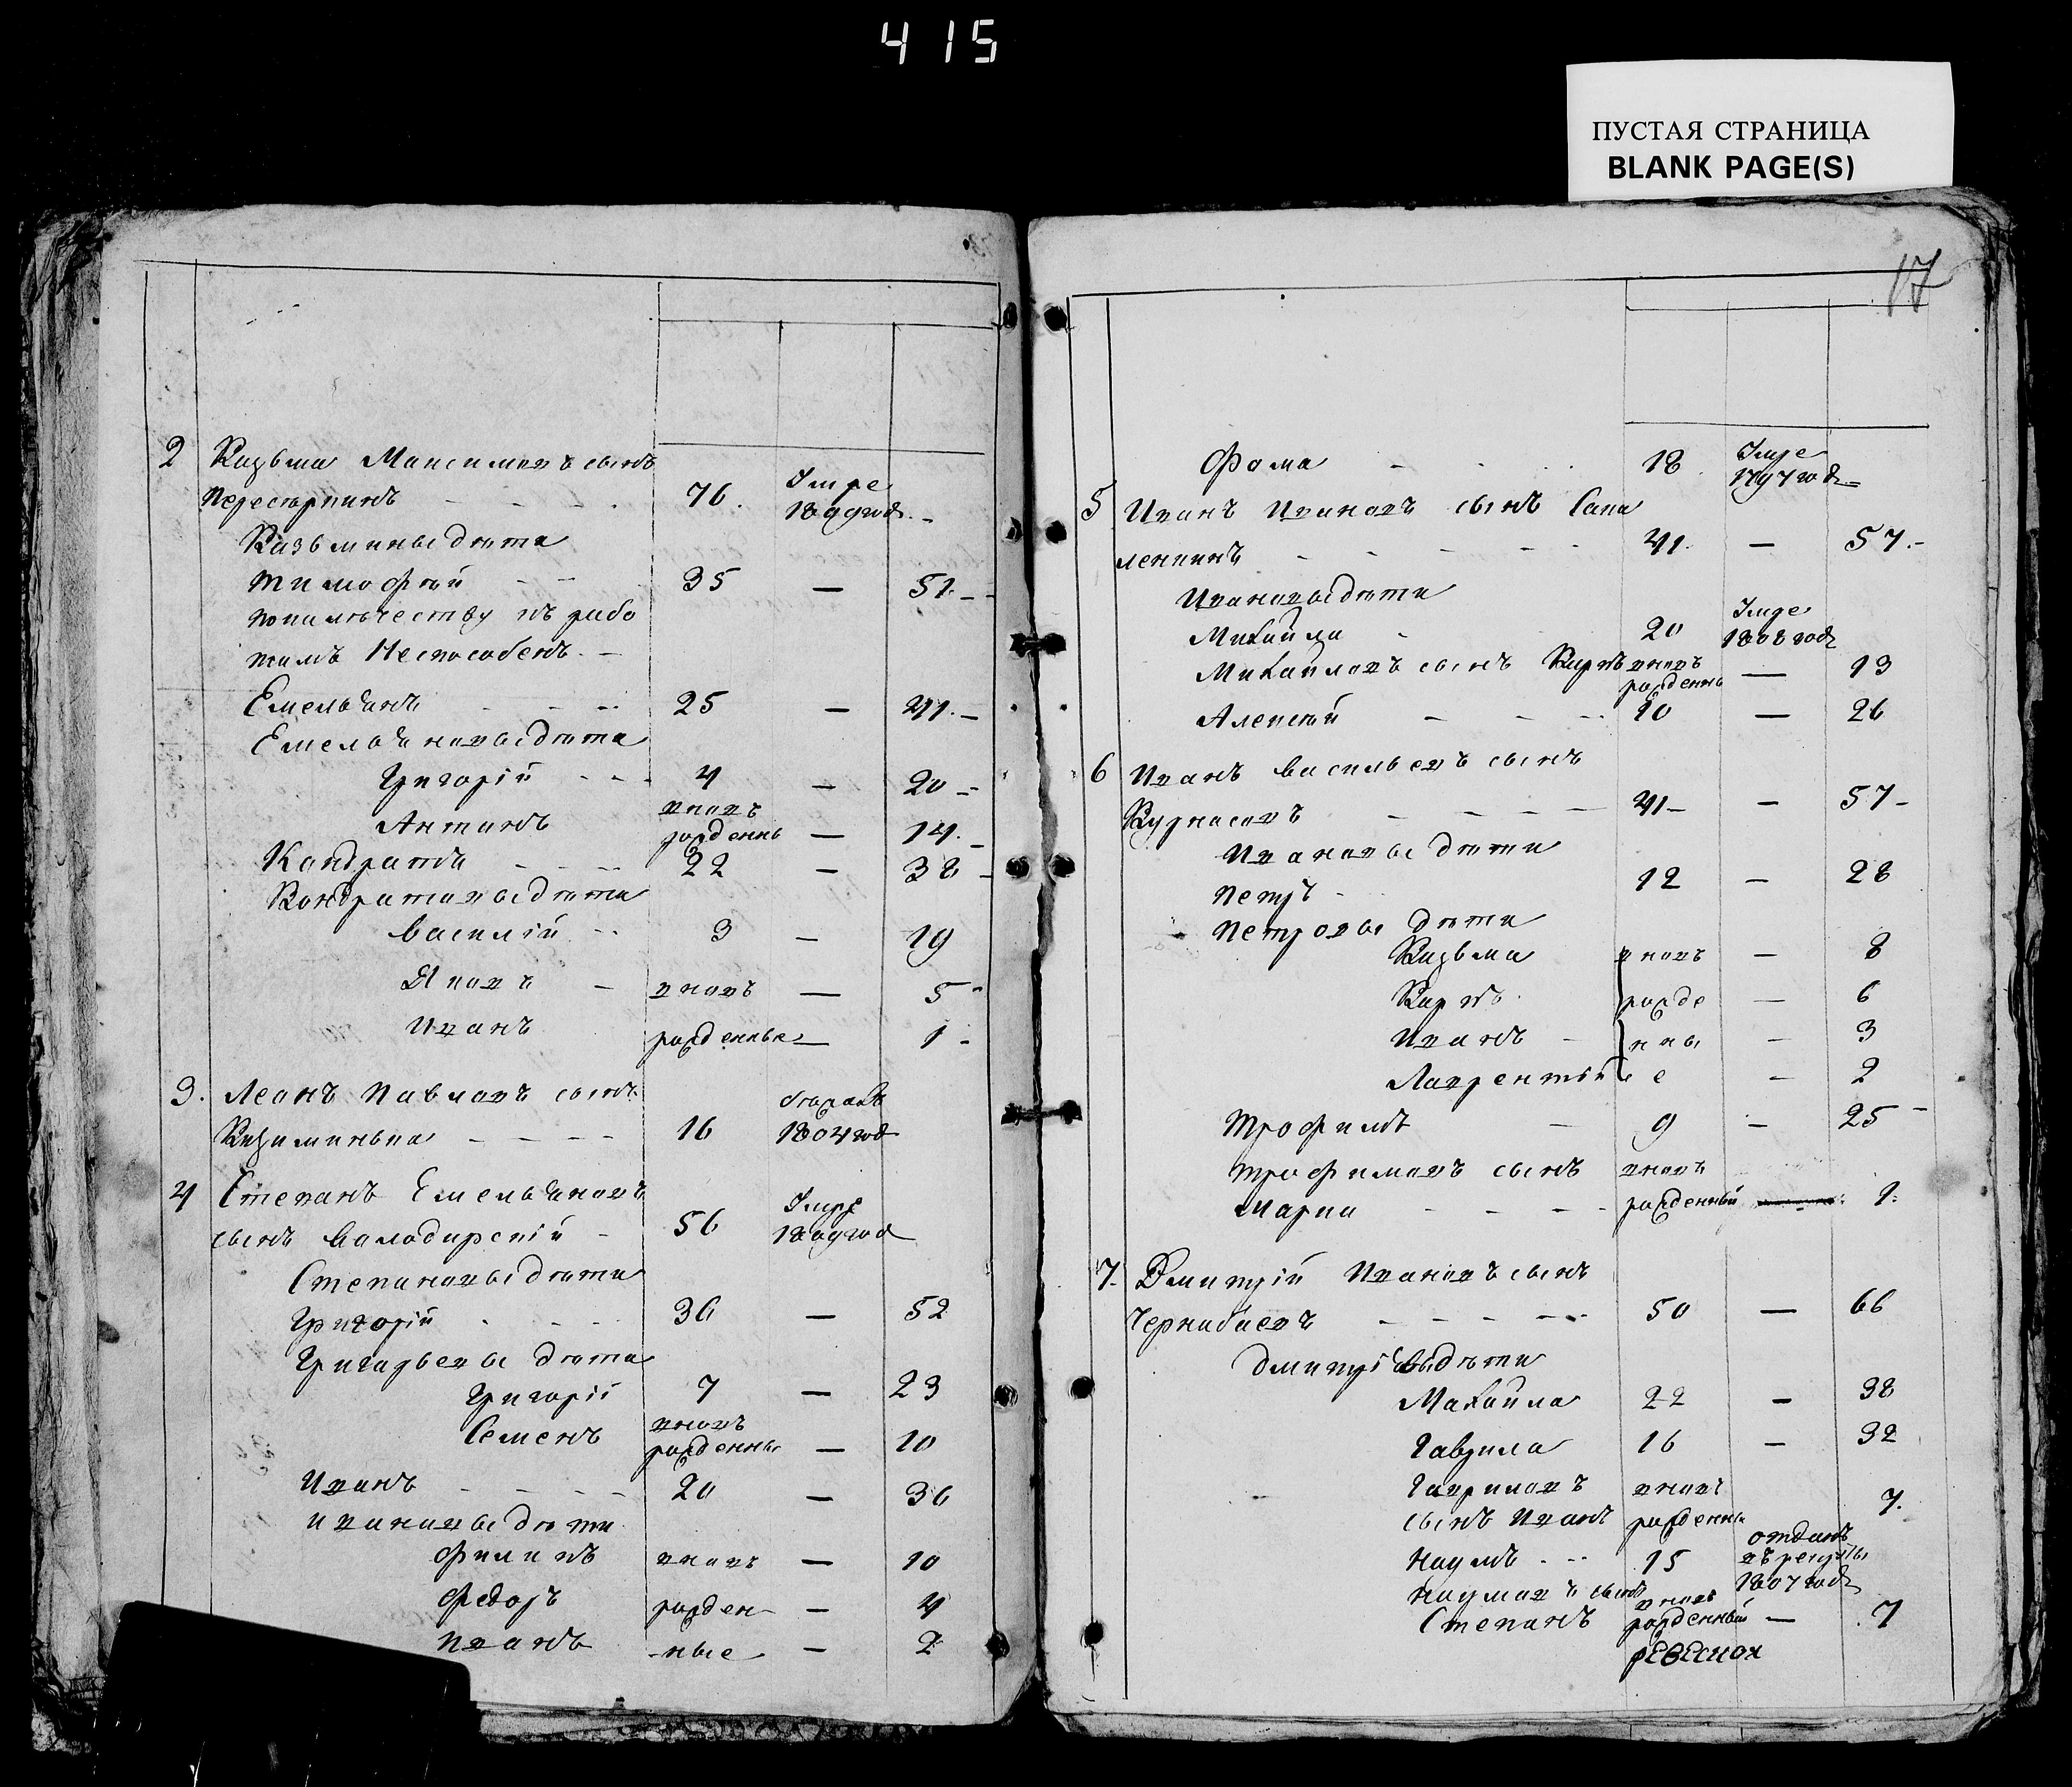 415
ПУСТАЯ СТРАНИЦА
BLANK PAGE(S)
17
2 Казьма Максимовъ сынъ
76. 1809 год.
Казьмины дѣти
Тимофѣй 35 — 51.
неспособенъ.
Емельянъ 25 — 41.
Емельяновы дѣти
Григорій 4 — 20
Антинъ вновь рожденны — 14.
Кондратй 22 — 38
Кондратовы дѣти
Василій 3 — 19
Яковъ — вновь — 5
Иванъ рожденные — 1
3. Леонъ Павловъ сынъ
16 1804 год
4 Степанъ Емельяновъ
сынъ Валодирскій 56 1809 год
Степановы дѣти
Григорій 36 — 52
Григорьевы дѣти
Григорій 7 — 23
Семенъ вновь рожденны — 10
Иванъ 20 — 36
Ивановы дѣти
Филипъ вновь — 10
Федоръ рожден — 4
Иванъ -ные — 2
Фома 18 1797 год
5 Иванъ Ивановъ сынъ Сапа
ленкинъ 41 — 57.
Ивановы дѣти
Михайла 20 1808 год
Михайловъ сынъ Карпъ вновь рожденны — 13
Алексѣй 10 — 26
6 Иванъ Васильевъ сынъ
Курносовъ 41 — 57
Ивановы дѣти
Петръ 12 — 28
Петровы дѣти
Казьма вновь — 8
Карпъ рожде — 6
Иванъ нны — 3
Лаврентій е — 2
Трофимъ 9 — 25
Трофимовъ сынъ вновь
Марка рожденный 1.
7. Дмитрій Ивановъ сынъ
Чернабаевъ 50 — 66
Дмитріевы дѣти
Михайла 22 — 38
Гаврила 16 — 32
Гавриловъ вновь
сынъ Иванъ рожденны 7.
Наумъ 15 отданъ въ рекруты 1807 год
Наумовъ сынъ вновь
Степанъ рожденный — 7